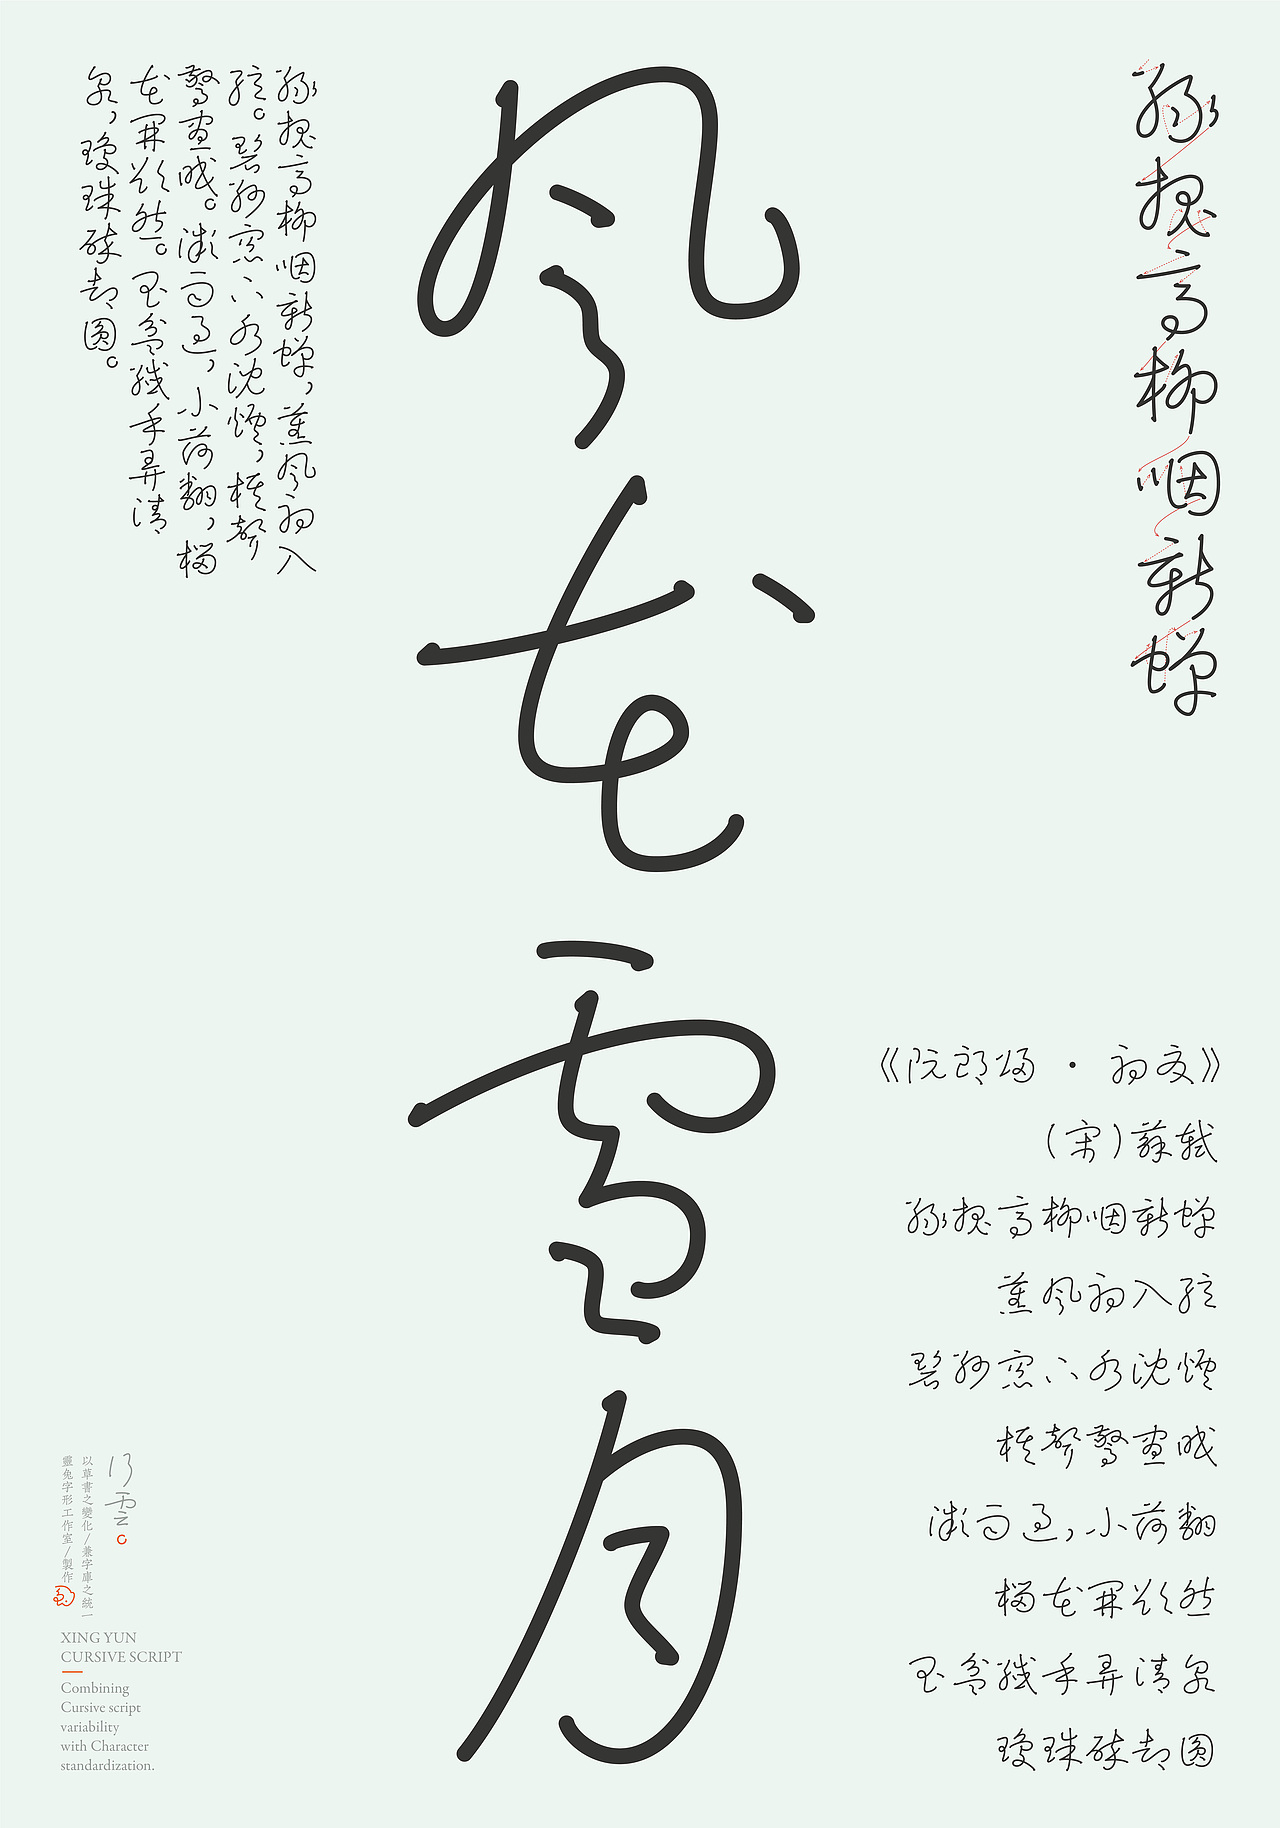 綠槐高柳咽新蟬
風花雪月
綠槐高柳咽新蟬,薰風初入
弦。碧紗窗下水沈煙,棋聲
驚晝眠。微雨過,小荷翻,榴
花開欲然。玉盆纖手弄清
泉,瓊珠碎卻圓。
《阮郎歸 · 初夏》
(宋)蘇軾
綠槐高柳咽新蟬
薰風初入弦
碧紗窗下水沈煙
棋聲驚晝眠
微雨過,小荷翻
榴花開欲然
玉盆纖手弄清泉
瓊珠碎卻圓
行雲
以草書之變化/兼字庫之統一
靈兔字形工作室/製作
XING YUN
CURSIVE SCRIPT
Combining
Cursive script
variability
with Character
standardization.